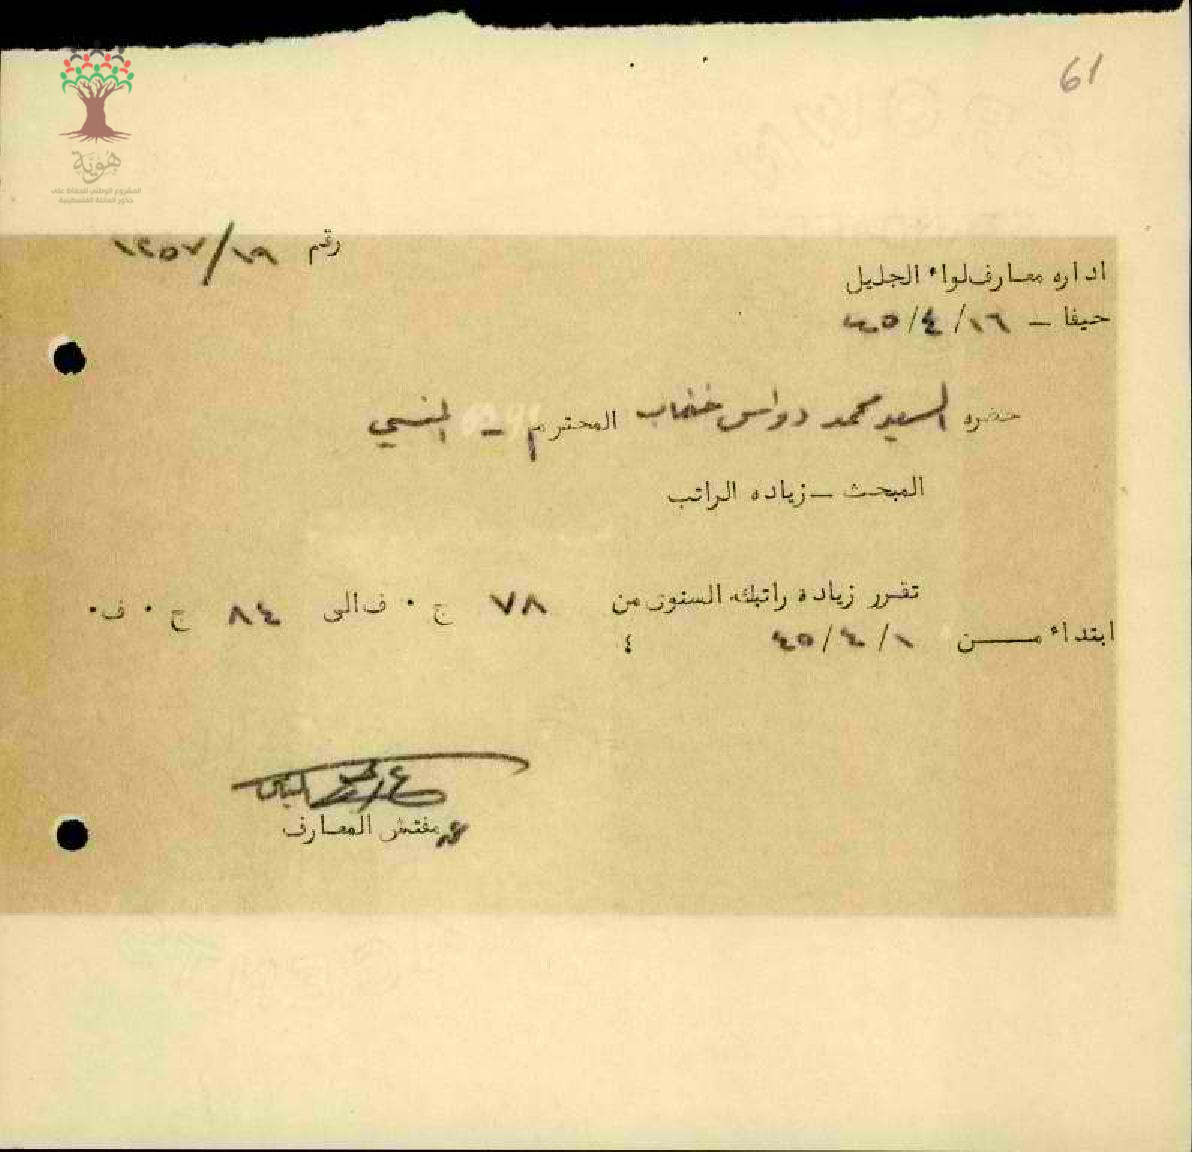 61
هُوِيَّة
المشروع الوطني للحفاظ على
جذور العائلة الفلسطينية
رقم ١٩/١٢٥٧
اداره معارف لواء الجليل
حيفا – ١٦/٤/٤٥
حضره السيد محمد دواس المحترم – المنسي
المبحث – زياده الراتب
تقرر زيادة راتبك السنوى من ٧٨ ج ٠ ف الى ٨٤ ج ٠ ف٠
ابتداء مـــن ١/٤/٤٥
مفتش المعارف